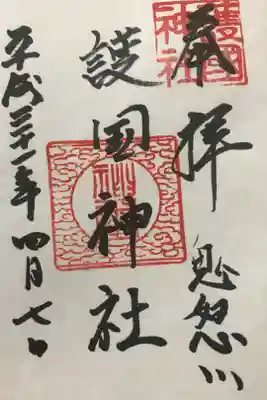 奉拝
鬼怒川
護国神社
平成三十一年四月七日
護國神社